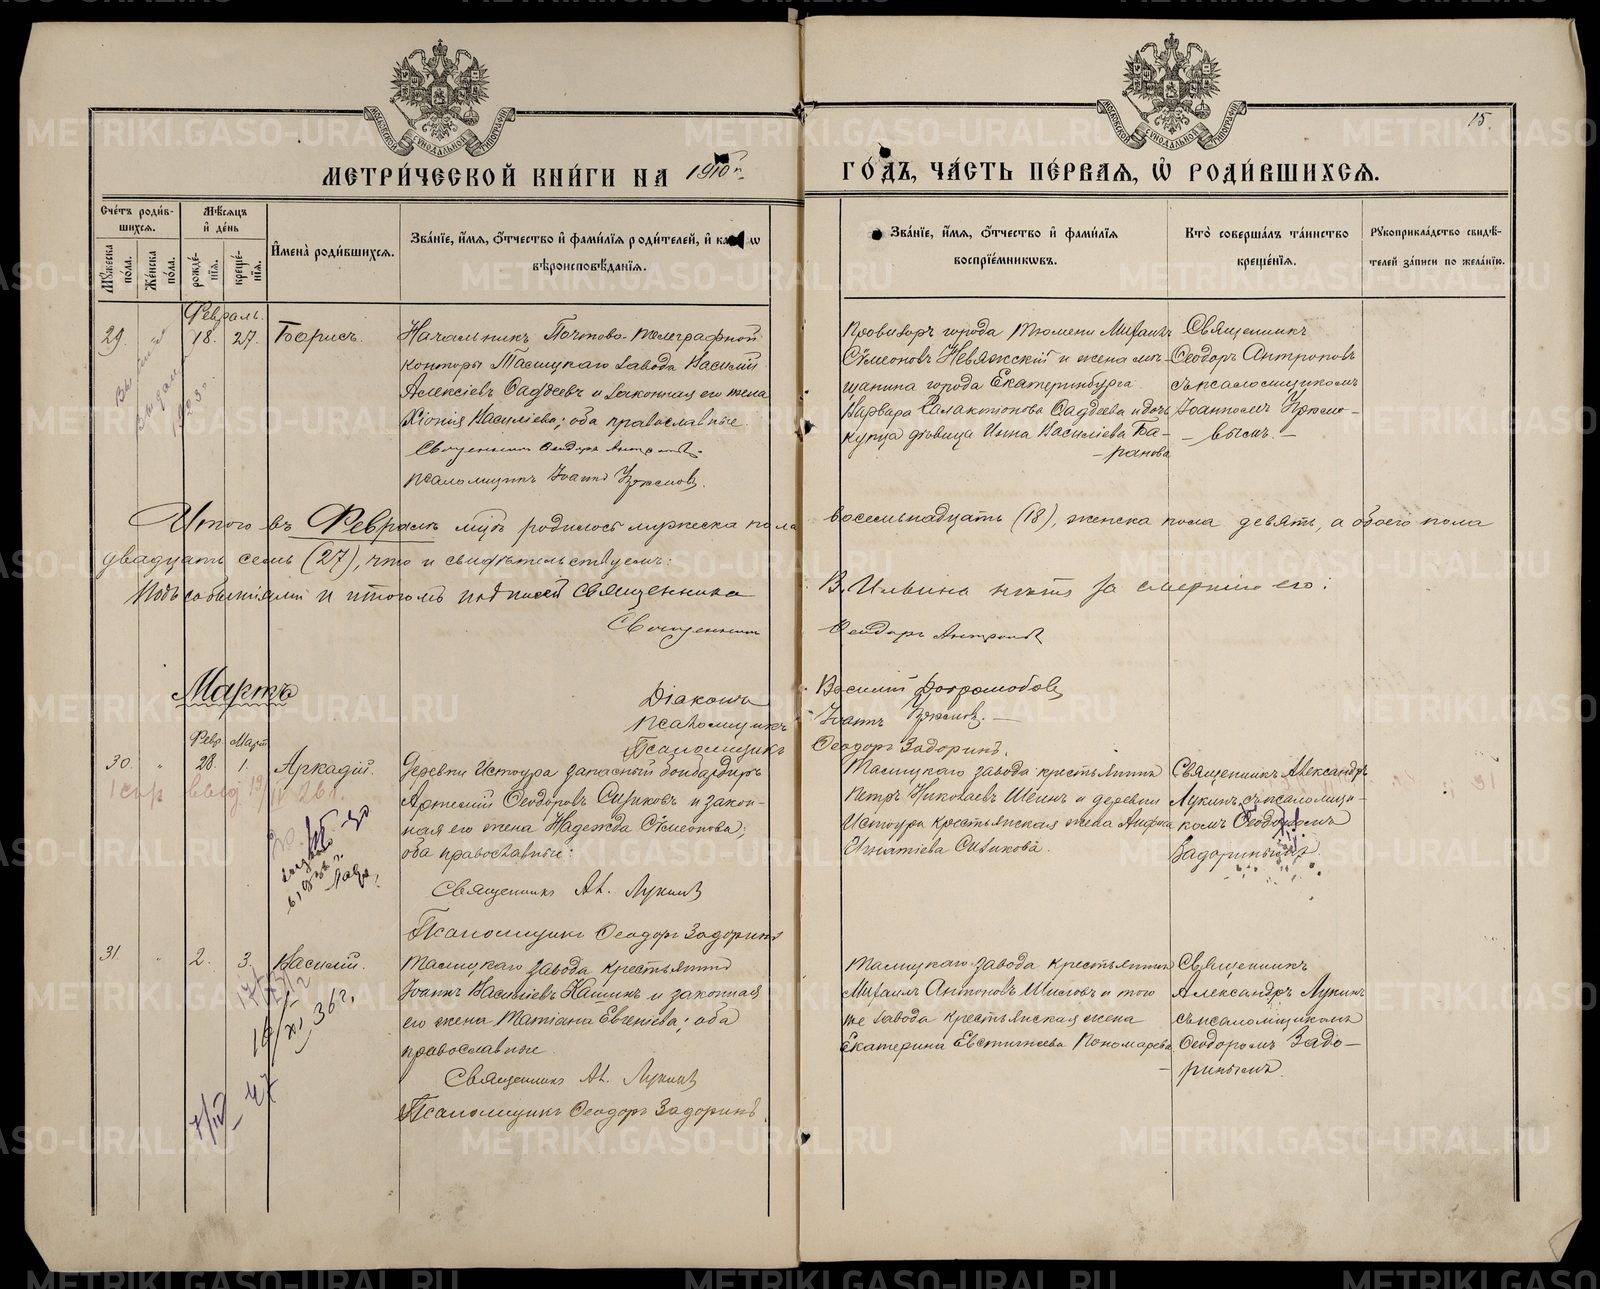 15.
МЕТРИ́ЧЕСКОЙ КНИ́ГИ НА 1910 г.
ГО́ДЪ, ЧА́СТЬ ПЕ́РВАЯ, Ѡ РОДИ́ВШИХСЯ.
Сче́тъ роди́вшихся.
Мꙋ́жеска по́ла.
Же́нска по́ла.
Мѣ́сяцъ и҆ де́нь
рожде́нїя.
креще́нїя.
И҆мена̀ роди́вшихся.
Зва́нїе, и҆́мя, ѻ҆́тчество и҆ фами́лїя роди́телей, и҆ како́гѡ
вѣроисповѣ́данїя.
Зва́нїе, и҆́мя, ѻ҆́тчество и҆ фами́лїя
воспрїе́мникѡвъ.
Кто̀ соверша́лъ та́инство
креще́нїя.
Рꙋкоприкла́дство свидѣ́телей за́писи по жела́нїю.
Февраль.
29.
18. 27.
Борисъ.
Начальникъ Почтово-телеграфной
конторы Талицкаго завода Василій
Алексіевъ Фаддеевъ и законная его жена
Хіонія Васильева; оба православные.
Священникъ Ѳеодоръ Антроповъ.
Псаломщикъ Іоаннъ
Провизоръ города Тюмени Михаилъ
Сѵмеоновъ Невяжскій и жена мѣщанина города Екатеринбурга
Варвара Галактіонова Фаддеева и дочь
купца дѣвица Инна Васильева Баранова
Священникъ
Ѳеодоръ Антроповъ
съ псаломщикомъ
Іоанномъ
Итого въ Февралѣ мцѣ родилось мужеска пола восемьнадцать (18), женска пола девять, а обоего пола
двадцать семь (27), что и свидѣтельствуемъ:
Подъ событіями и итогомъ подписей Священника В. Ильина нѣтъ за смертію его:
Священникъ Ѳеодоръ Антроповъ
Діаконъ Василій
Псаломщикъ Іоаннъ
Псаломщикъ Ѳеодоръ Задоринъ.
Мартъ
Февр. Март.
30. " 28. 1.
Аркадій.
Деревни Истоура запасный бомбардиръ
Артемій Ѳеодоровъ Сизиковъ и законная его жена Надежда Сѵмеонова;
оба православные:
Священникъ Ал. Лукинъ
Псаломщикъ Ѳеодоръ Задоринъ
Талицкаго завода крестьянинъ
Петръ Николаевъ Шеинъ и деревни
Истоура крестьянская жена Анфиса
Игнатіева Сизикова.
Священникъ Александръ
Лукинъ съ псаломщикомъ Ѳеодоромъ
Задоринымъ.
31. " 2. 3.
Василій.
Талицкаго завода крестьянинъ
Іоаннъ Васильевъ Кашинъ и законная
его жена Татіана Евгеніева; оба
православные.
Священникъ Ал. Лукинъ
Псаломщикъ Ѳеодоръ Задоринъ.
Талицкаго завода крестьянинъ
Михаилъ Антоновъ Шиловъ и того
же завода крестьянская жена
Екатерина Евстигнеева Пономарева
Священникъ
Александръ Лукинъ
съ псаломщикомъ
Ѳеодоромъ Задоринымъ.
16/XI 36 г.
7/IV – 47
METRIKI.GASO-URAL.RU